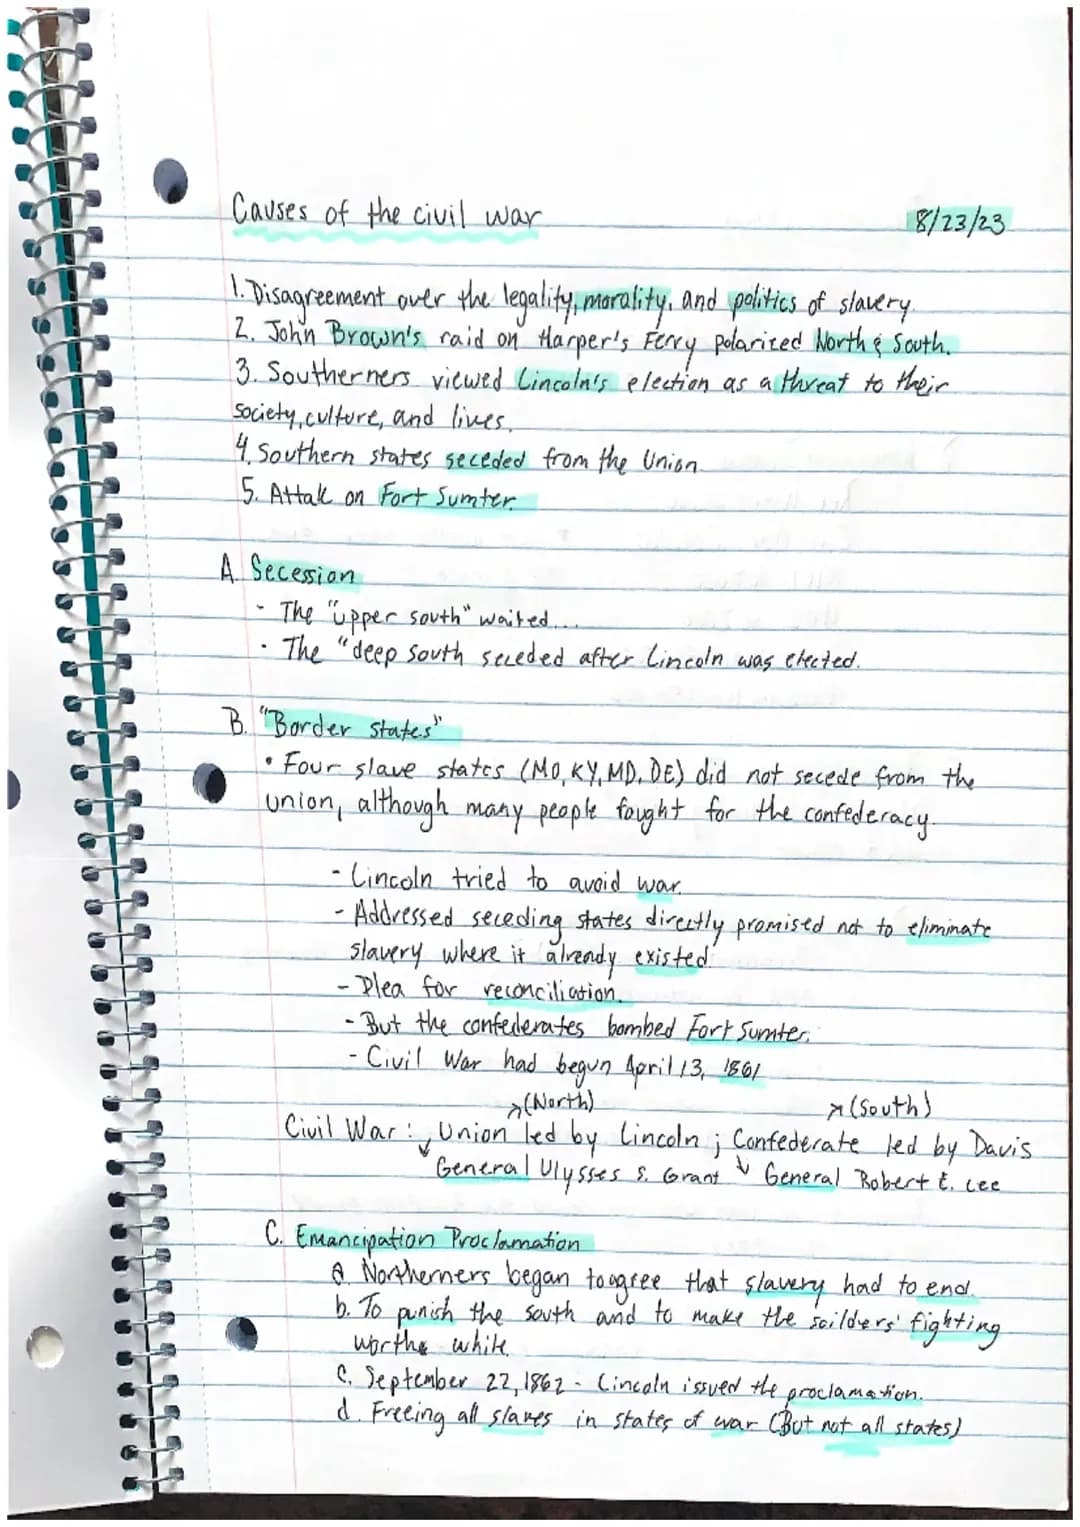 Causes of the civil war 8/23/23
1. Disagreement over the legality, morality, and politics of slavery.
2. John Brown's raid on Harper's Ferry polarized North & South.
3. Southerners viewed Lincoln's election as a threat to their
society, culture, and lives.
4. Southern states seceded from the Union.
5. Attak on Fort Sumter.
A. Secession
- The "upper south" waited...
· The "deep south seceded after Lincoln was elected.
B. "Border States"
• Four slave states (MO, KY, MD, DE) did not secede from the
union, although many people fought for the confederacy.
- Lincoln tried to avoid war.
- Addressed seceding states directly promised not to eliminate
slavery where it already existed.
- Plea for reconciliation.
- But the confederates bombed Fort Sumter.
- Civil War had begun April 13, 1861
↗(North) ↗(South)
Civil War: Union led by Lincoln; Confederate led by Davis
↓ General Ulysses S. Grant ↓ General Robert E. Lee
C. Emancipation Proclamation
a. Northerners began to agree that slavery had to end.
b. To punish the south and to make the soilders' fighting
worthe while.
c. September 22, 1862 - Lincoln issued the proclamation.
d. Freeing all slaves in states of war (But not all states)